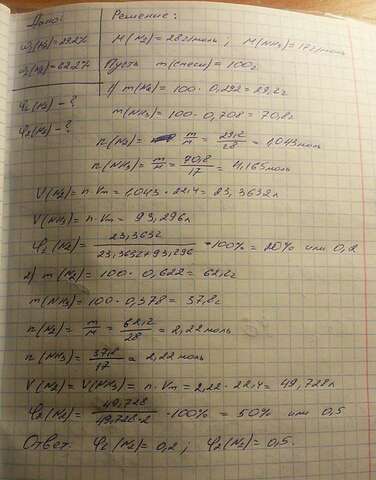 Дано:
Решение:
ω₁(N₂)=29,2%
M(N₂)=28г/моль; M(NH₃)=17г/моль
ω₂(N₂)=62,2%
Пусть m(смеси)=100г
φ₁(N₂) - ?
φ₂(N₂) - ?
1) m(N₂)=100·0,292=29,2г
m(NH₃)=100·0,708=70,8г
n(N₂)= m/M = 29,2/28 = 1,043моль
n(NH₃)= m/M = 70,8/17 = 4,165моль
V(N₂)=n·Vm=1,043·22,4=23,3632л
V(NH₃)=n·Vm=93,296л
φ₁(N₂)= 23,3632/23,3632+93,296 ·100%=20% или 0,2
2) m(N₂)=100·0,622=62,2г
m(NH₃)=100·0,378=37,8г
n(N₂)= m/M = 62,2/28 = 2,22моль
n(NH₃)= 37,8/17 = 2,22моль
V(N₂)=V(NH₃)=n·Vm=2,22·22,4=49,728л
φ₂(N₂)= 49,728/49,728·2 ·100%=50% или 0,5
Ответ: φ₁(N₂)=0,2; φ₂(N₂)=0,5.